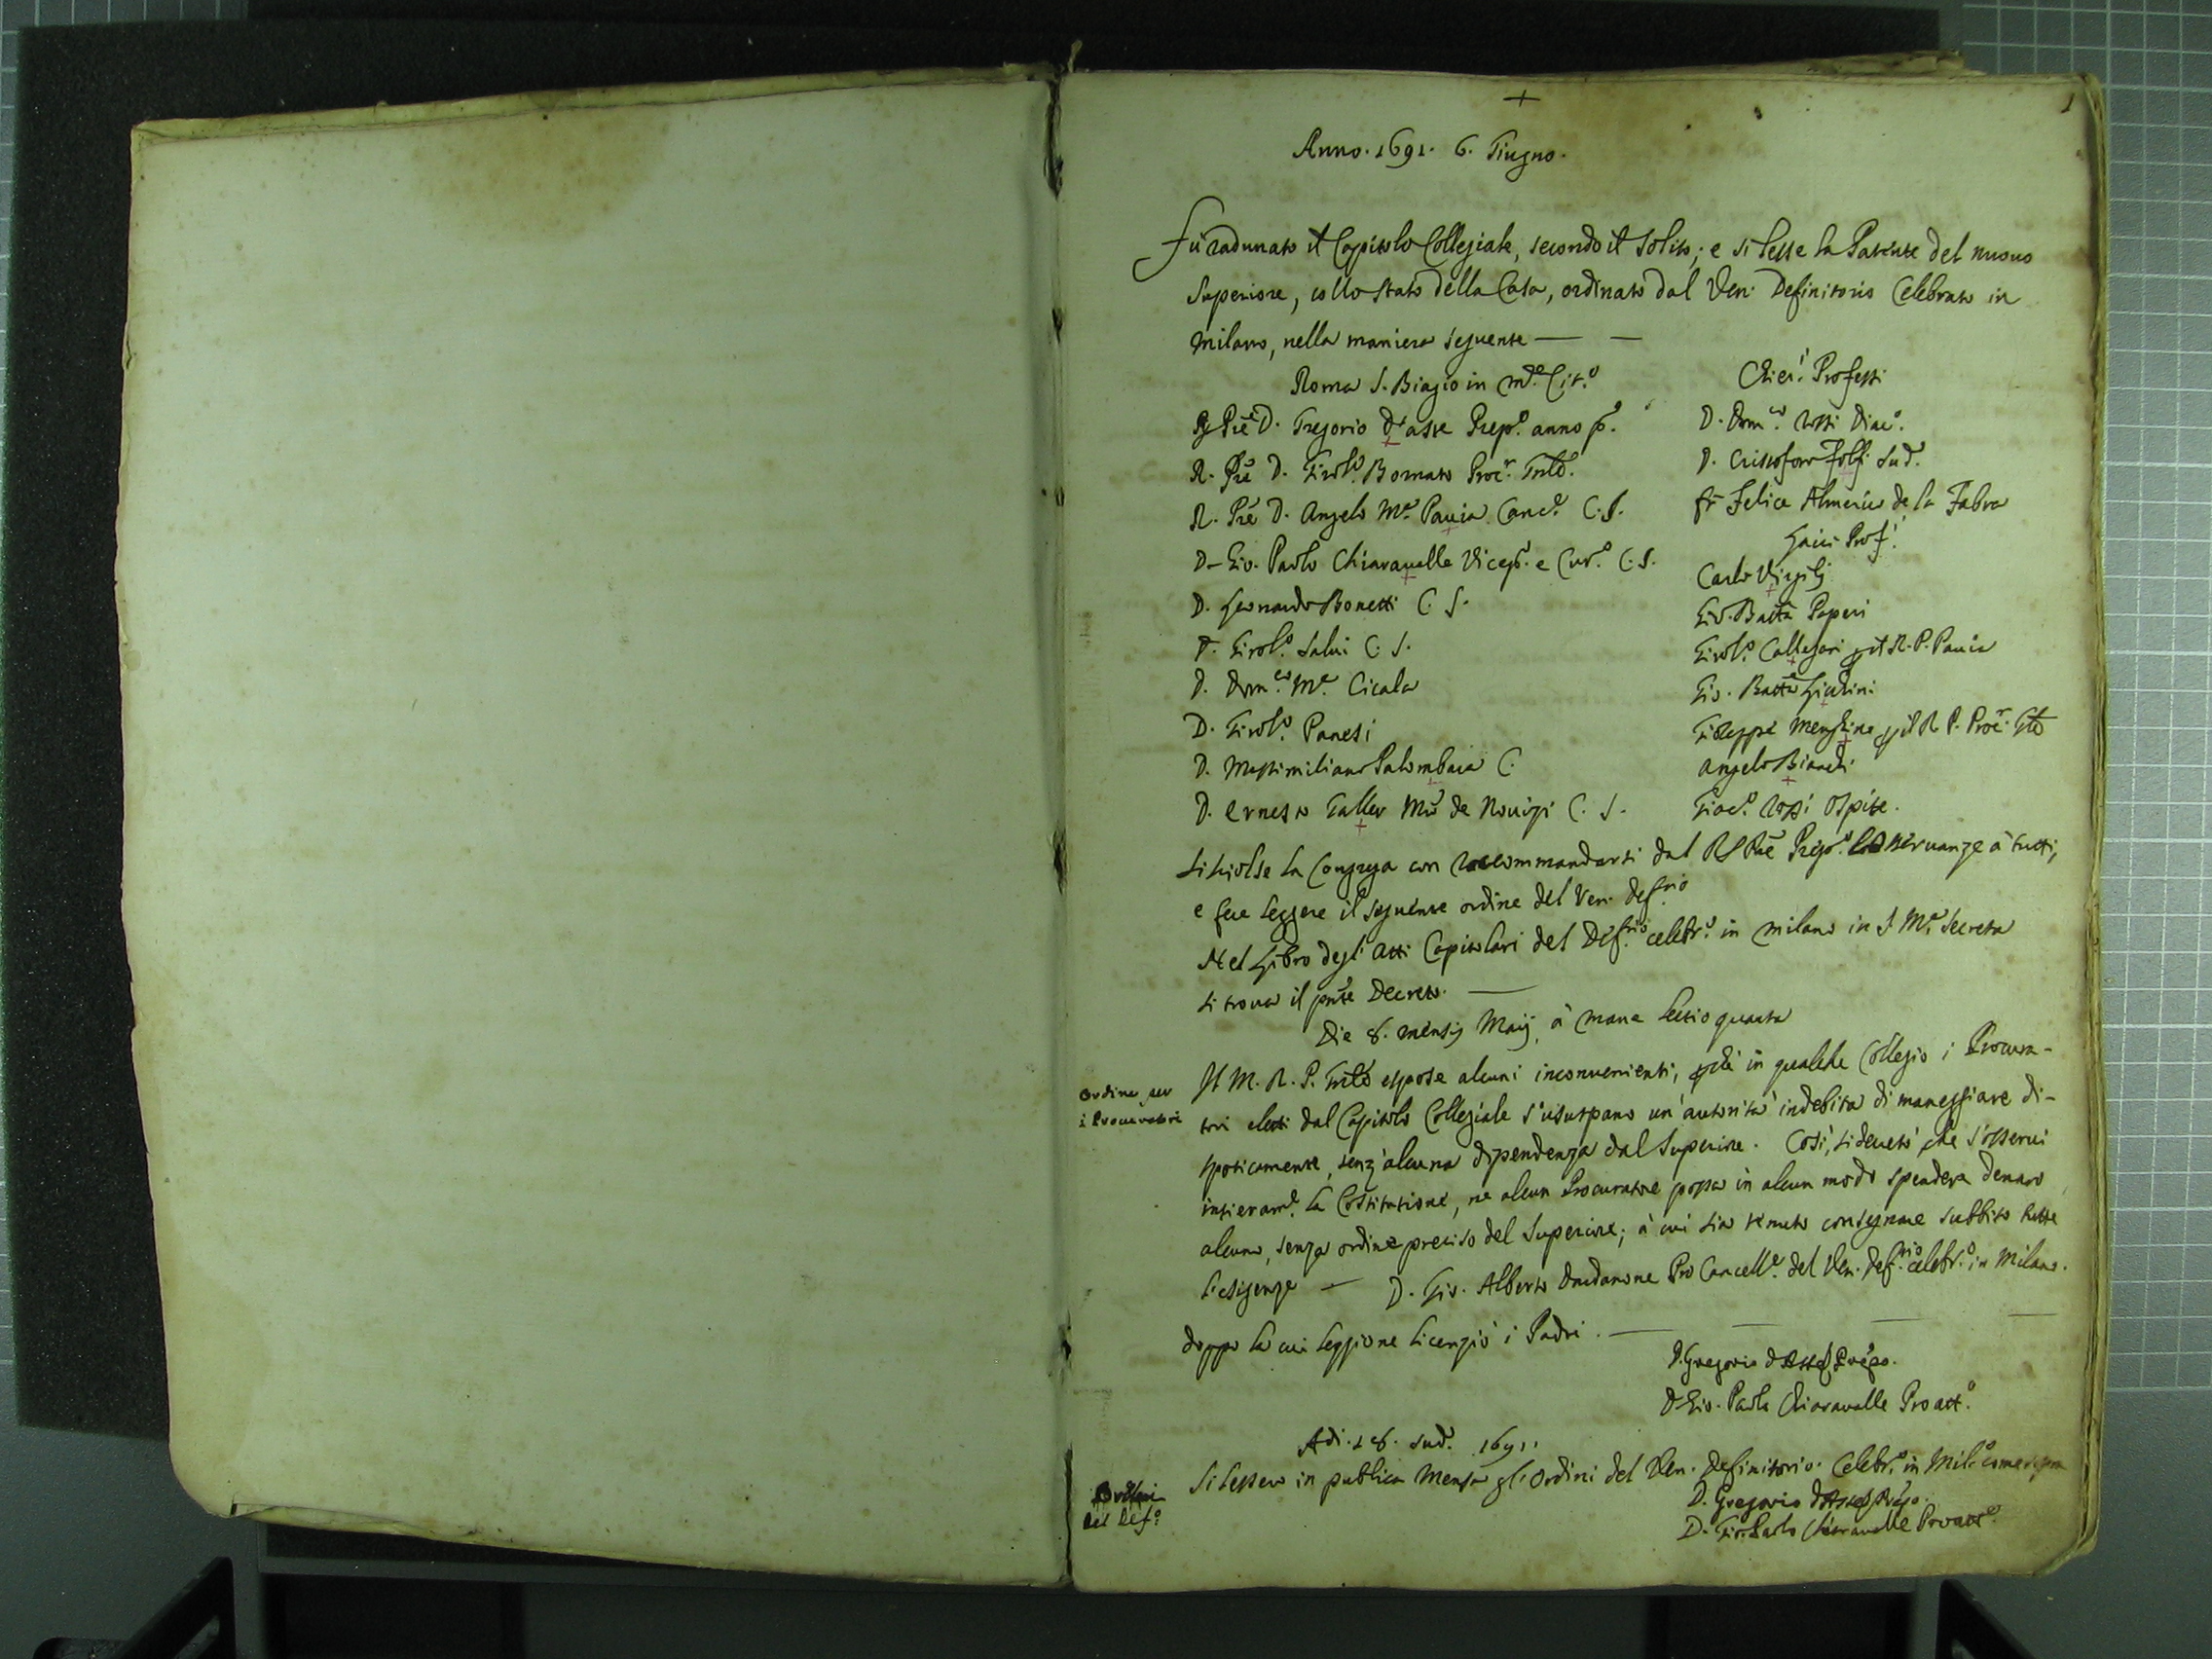 +
1
Anno. 1691. 6. Giugno.
Fù radunato il Capitolo Collegiale, secondo il solito; e si lesse la Patente del nuovo
Superiore, collo stato della Casa, ordinato dal Ven: Definitorio Celebrato in
Milano, nella maniera seguente — —
Roma S. Biagio in M.e Cit.o
D. Gregorio d'Asse Prep.o anno p.o
R. Pre D. Girol.o Bornato Proc.r Gnle.
R. Pre D. Angelo M.a Pavia Canc.e C. S.
D. Gio. Paolo Chiaravalle Vicep. e Cur.o C. S.
D. Leonardo Bonetti C. S.
D. Girol.o Salvi C. S.
D. Dom.co M.a Cicala
D. Girol.o Panesi
D. Massimiliano Palombara C.
D. Ernesto Galler de C. S.
Chier.i Professi
D. Dom.co Rossi Diac.o
D. Cristoforo Sud.
fr Felice Almeric de la Fabra
Laici Prof.i
Carlo Virgilj
Gio. Batta Peperi
Girol.o Callegari p il R. P. Pavia
Gio. Batta
Giuseppe p il R P. Proc.r Gle
Angelo Bianchi
Giac.o Rossi Ospite.
Si sciolse la Congrega con raccommandarsi dal Pre Prep.o l'osservanze à tutti,
e fece leggere il seguente ordine del Ven. Def.rio
Nel Libro degl'Atti Capitolari del Def.rio celebr.o in Milano in S. M.a Secreta
si trova il pnte Decreto. —
Die 8. mensis Maij, à mane sessio quarta
Ordine per
i Procuratori
Il M. R. P. Gnle espose alcuni inconvenienti, p che in qualche Collegio i Procura-
tori eletti dal Capitolo Collegiale s'usurpano un'autorità indebita di maneggiare di-
spoticamente, senz'alcuna dipendenza dal Superiore. Così, si decretò, che s'osservi
intieram.e la Costitutione, ne alcun Procuratore possa in alcun modo spendere denaro
alcuno, senza ordine preciso del Superiore; à cui sia tenuto consegnare subbito tutte
l'esigenze — D. Gio. Alberto Pro Cancell.e del Ven. Def.rio celebr.o in Milano.
doppo la cui lezzione licenziò i Padri. —
D. Gregorio d'Asse Prepo.
D. Gio. Paolo Chiaravalle Proatt.o
Adi. 18. sud.o 1691.
Ordini
del Def.o
Si lessero in publica Mensa gl'Ordini del Ven. Definitorio. Celebr.o in Mil.o come sopra
D. Gregorio d'Asse Prepo.
D. Gio. Paolo Chiaravalle Proatt.o